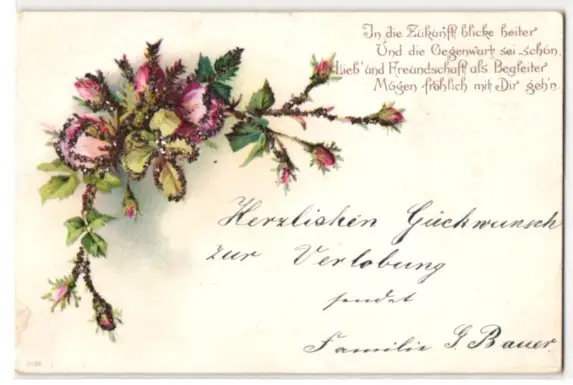 In die Zukunft blicke heiter
Und die Gegenwart sei schön,
Lieb' und Freundschaft als Begleiter
Mögen fröhlich mit Dir geh'n.
Herzlichen Gückwunsch
zur Verlobung
sendet
Familie G. Bauer.